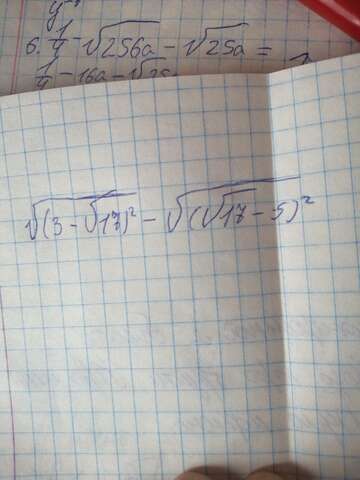 6. 1/4 - √256a - √25a =
1/4 - 16a - √25
√(3 - √17)² - √(√17 - 5)²